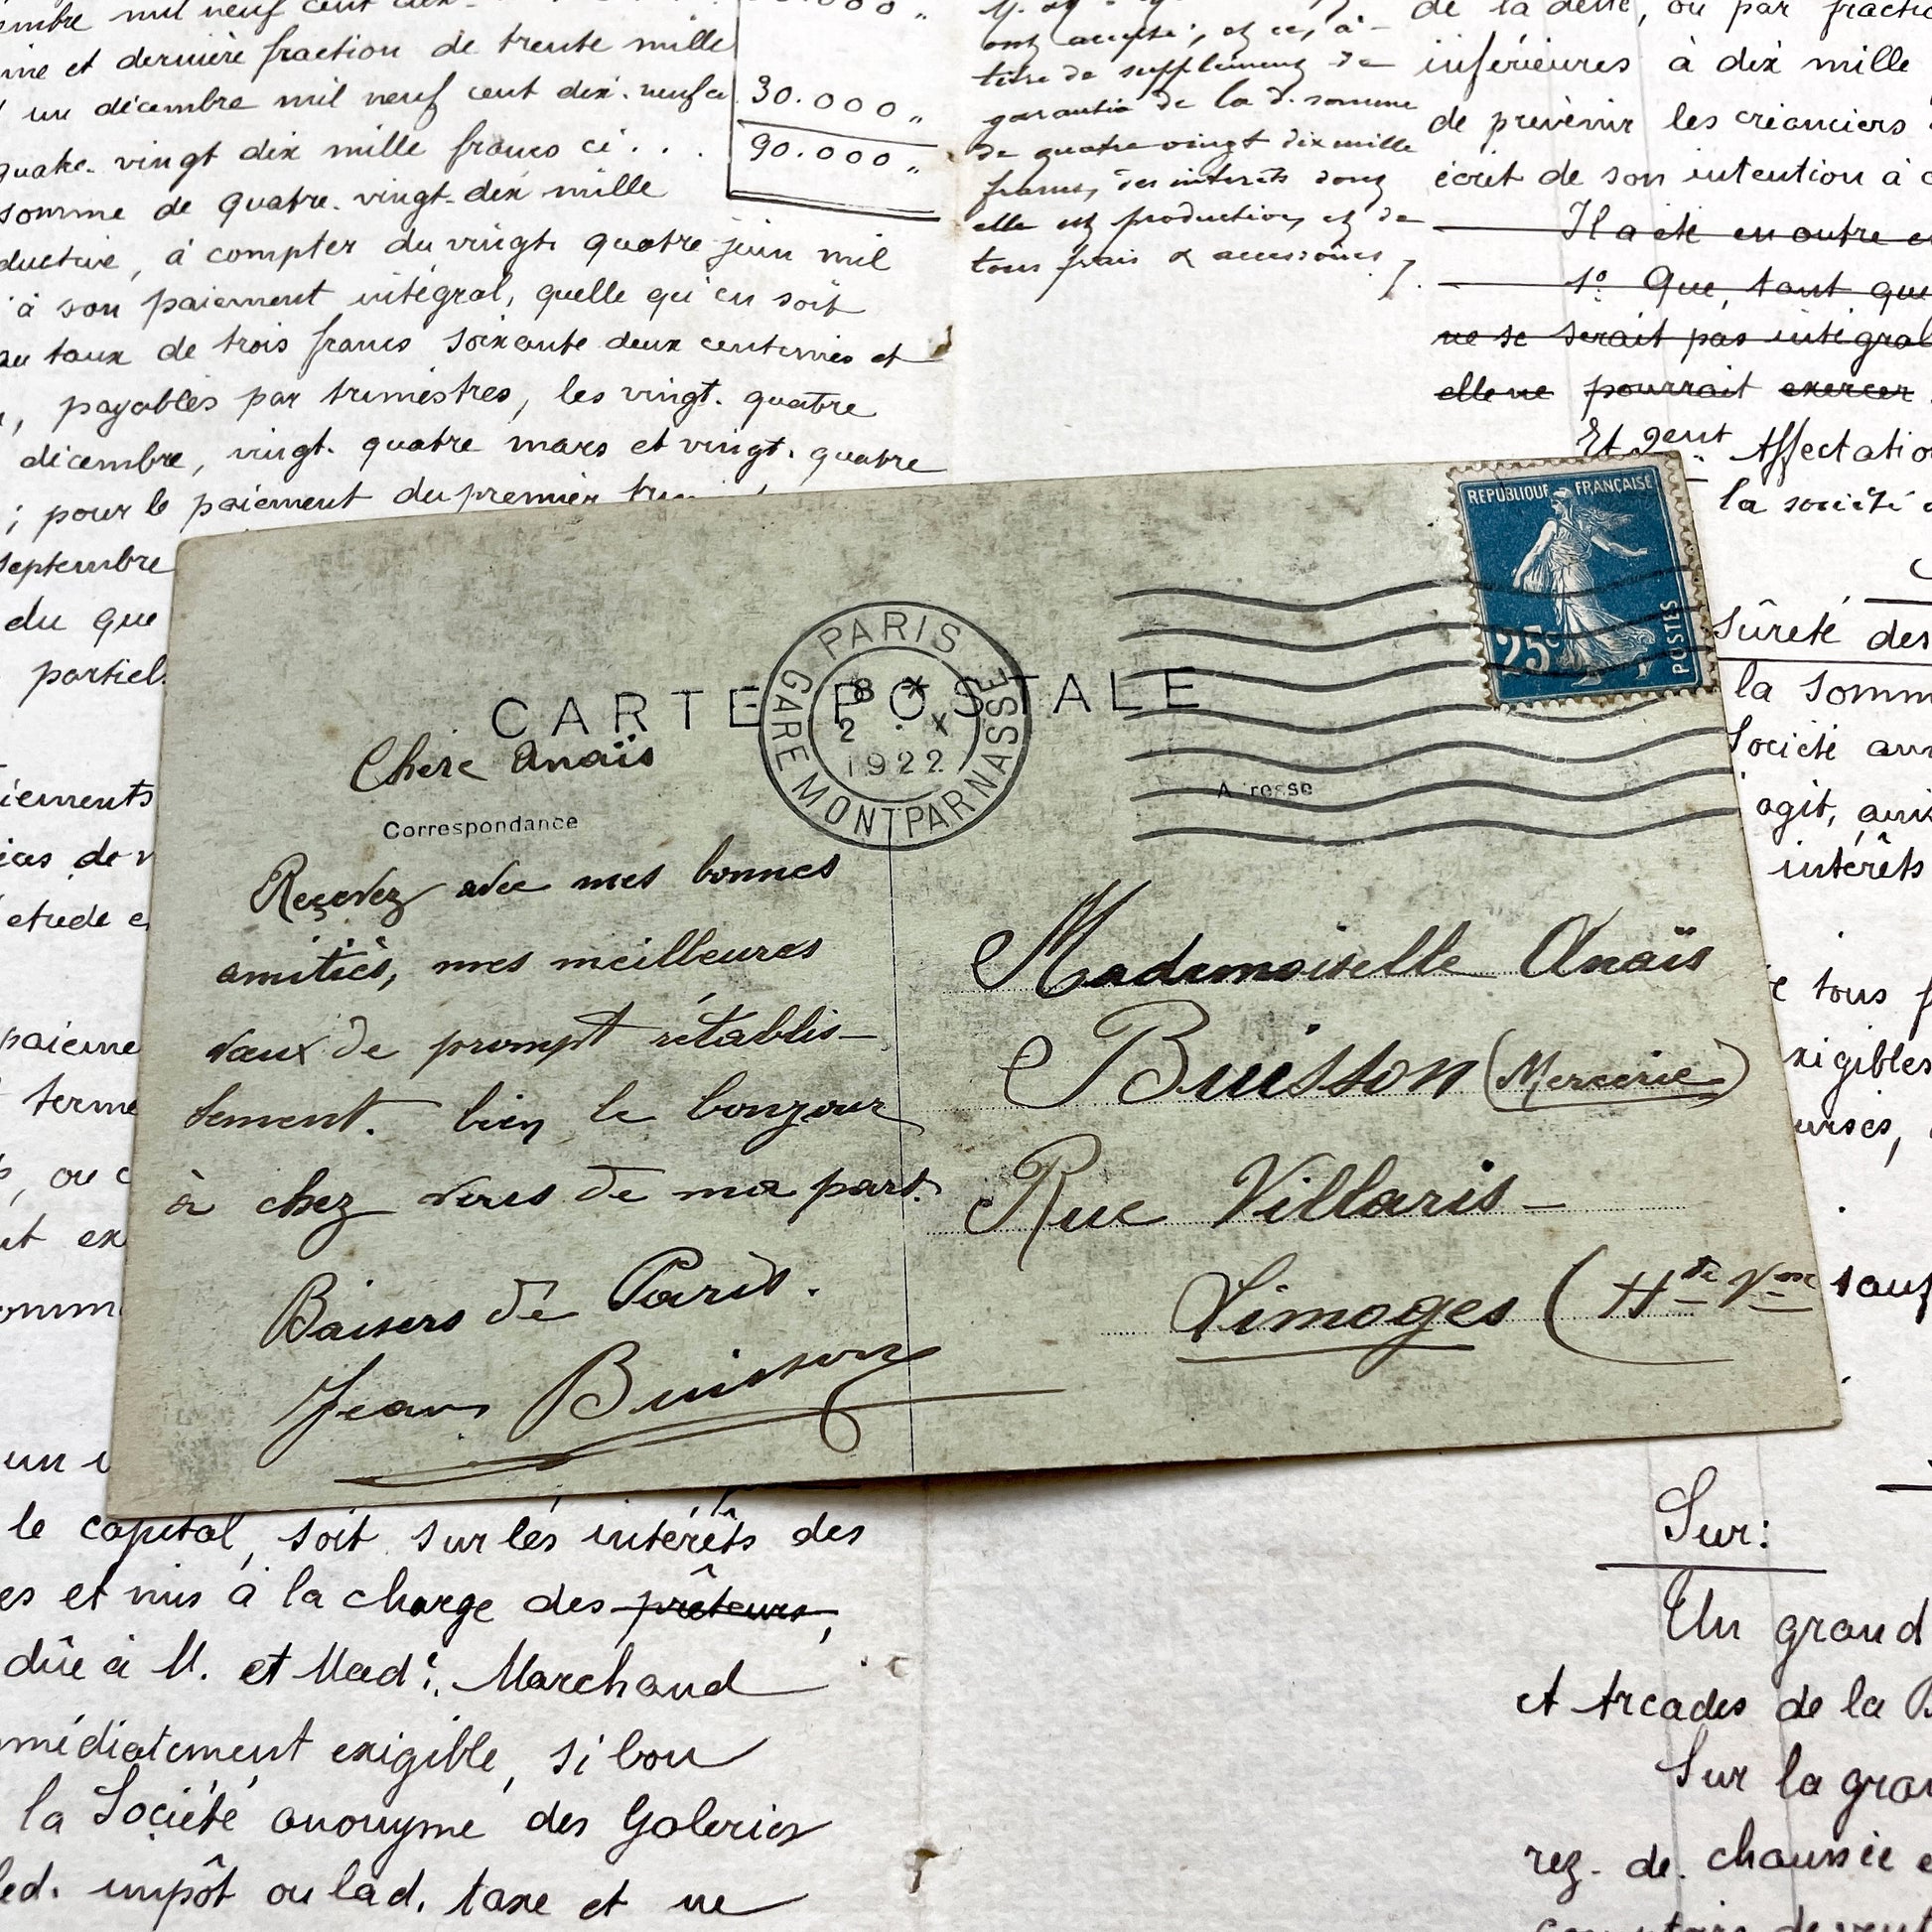 mil neuf cent
et dernière fraction de trente mille
un décembre mil neuf cent dix-neuf ci 30.000 "
quatre-vingt dix mille francs ci . . . 90.000 "
somme de quatre-vingt-dix mille
, à compter du vingt-quatre juin mil
à son paiement intégral, quelle qu'en soit
au taux de trois francs soixante deux centimes et
, payables par trimestres, les vingt-quatre
décembre, vingt-quatre mars et vingt-quatre
; pour le paiement du premier
septembre
du que
partiel
etude
terme
un
le capital, soit sur les intérêts des
es et mis à la charge des prêteurs,
dûe à M. et Mad.e Marchand
exigible, si bon
la Société anonyme des Galeries
led. impôt ou lad. taxe et ne
ont accepté, et ce, à
titre de supplément de
garantie de la d. somme
de quatre vingt dix mille
francs, des intérêts dont
elle est production, et de
tous frais & accessoires
de la dette, ou par
inférieures à dix mille
de prévenir les créanciers
écrit de son intention à
Il a été en outre
1º Que, tant que
ne se serait pas
elle ne pourrait exercer
Et 2ent Affectation
la société
Sûreté des
la somme
Société
agit,
intérêts
tous
sauf
Sur:
Un grand
et Arcades de la
Sur la
rez-de-chaussée
CARTE POSTALE
PARIS
GARE MONTPARNASSE
8 X
2 . X
1922
REPUBLIQUE FRANÇAISE
25c
POSTES
Chère Anaïs
Correspondance
Reçevez avec mes bonnes
amitiés, mes meilleures
vœux de prompt rétablis-
sement. bien le bonjour
à chez vous de ma part.
Baisers de Paris.
Jean Buisson
Adresse
Mademoiselle Anaïs
Buisson (Mercerie)
Rue Villaris-
Limoges (Hte Vne